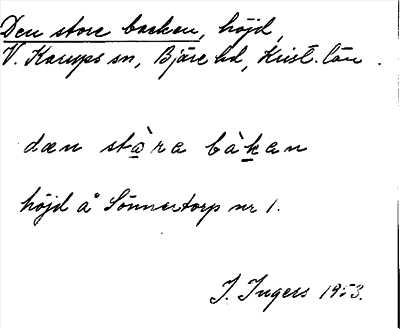 Den store backen, höjd,
V. Karups sn, Bjäre hd, Krist. län.
dæn stòra bàkan
höjd å Sönnertorp nr 1.
I. Ingers 1953.